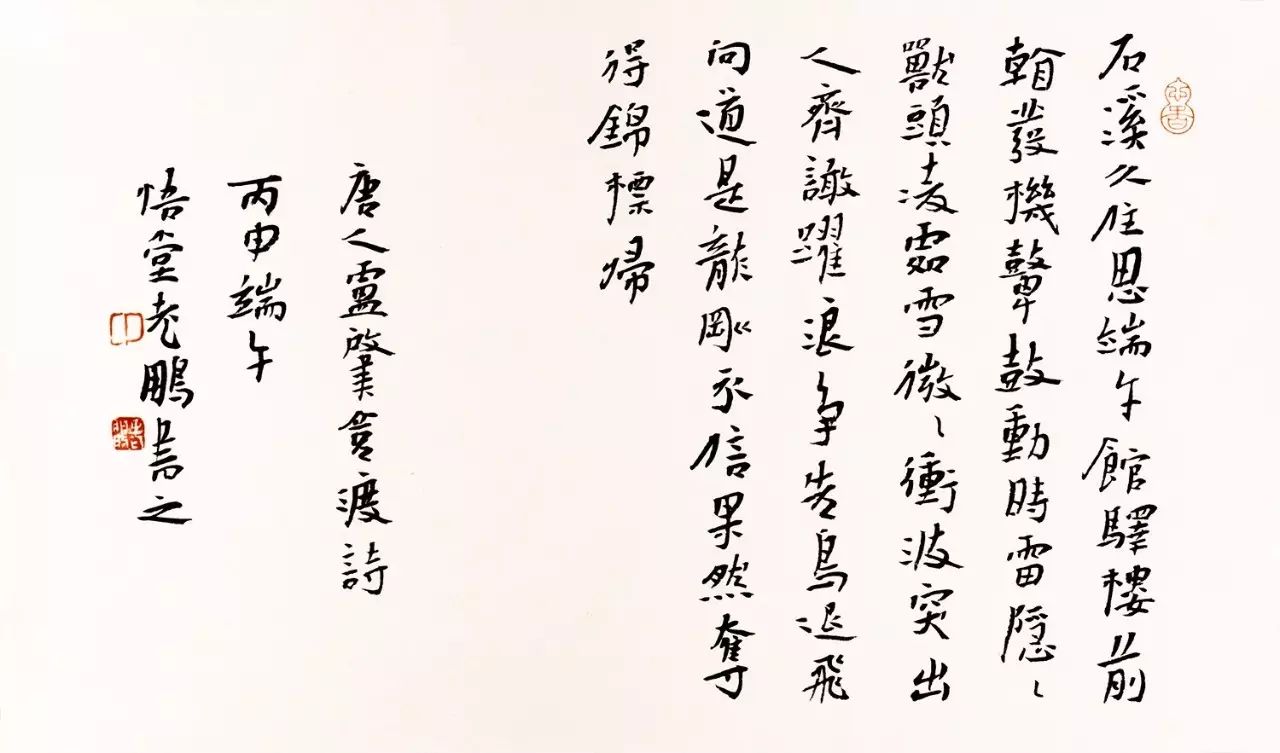 石溪久住思端午館驛樓前
看發機鼙鼓動時雷隱〻
獸頭凌處雪微〻衝波突出
人齊譀躍浪爭先鳥退飛
向道是龍剛不信果然奪
得錦標歸
唐人盧肇競渡詩
丙申端午
悟堂老鵬書之